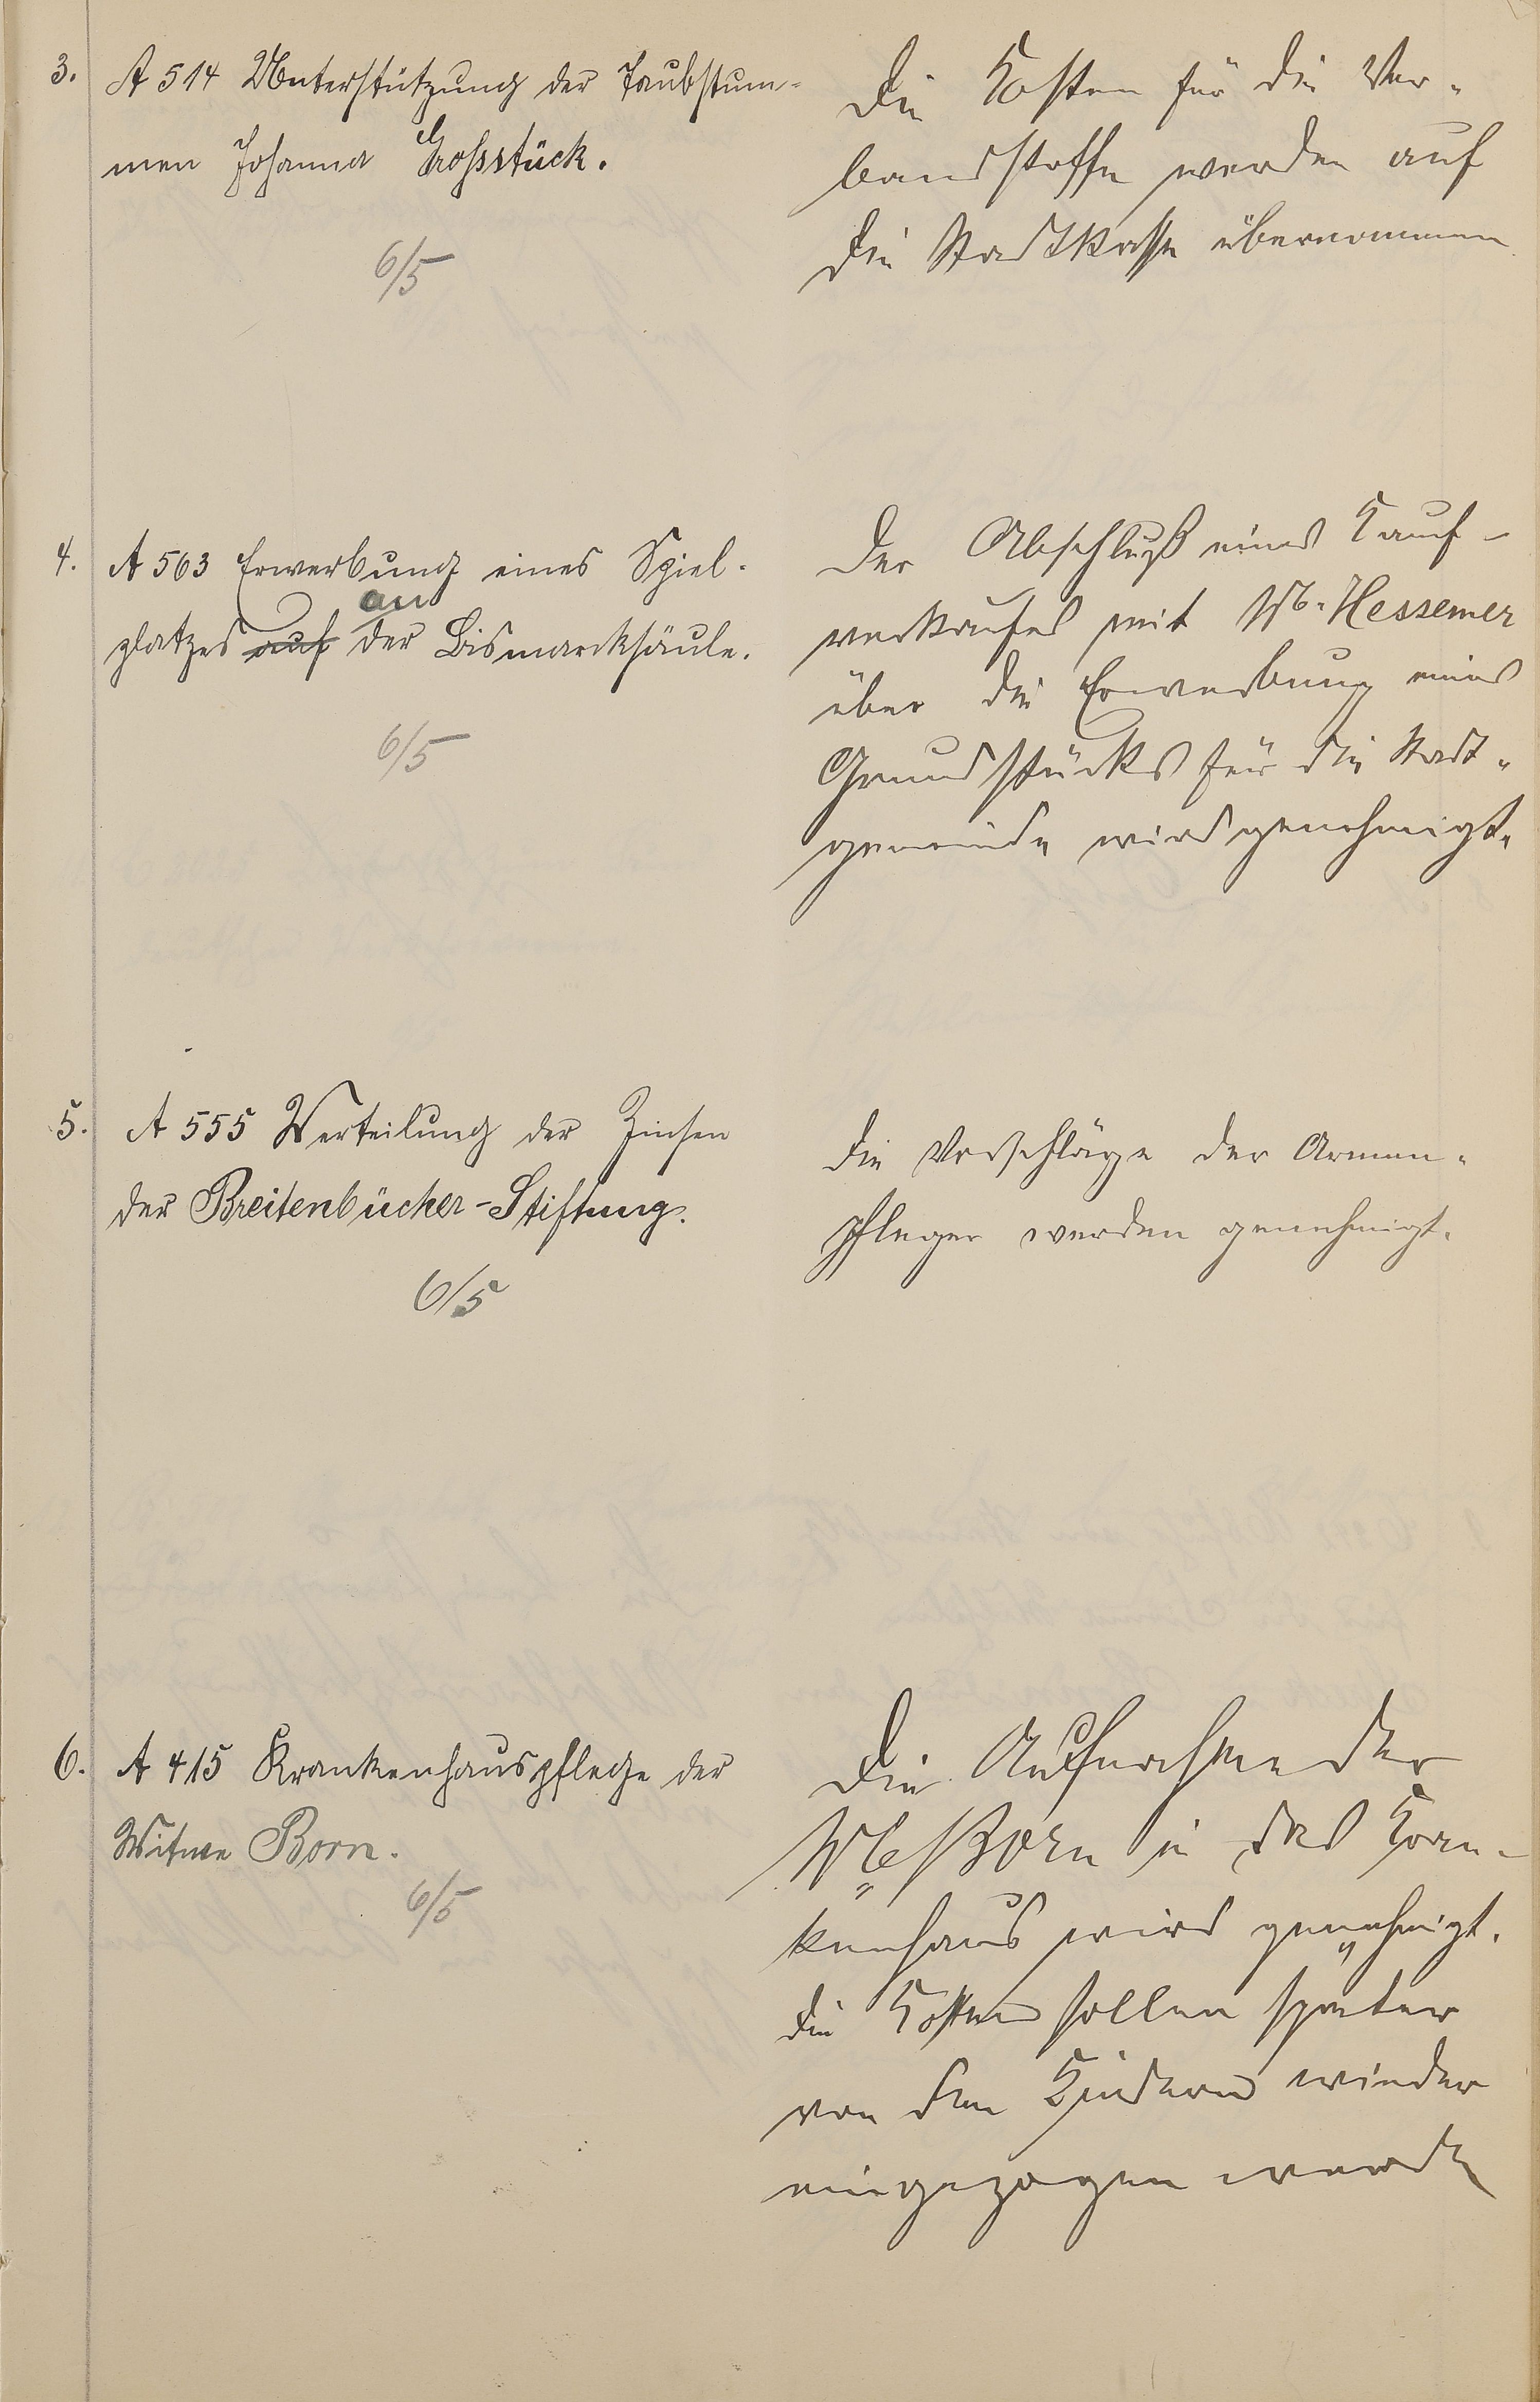 3. A 514 Unterstützung der Taubstum-
men Johanna Grossstück.
6/5
Die Kosten für die Ver-
bandstoffe werden auf
die Stadtkasse übernommen
4. A 563 Erwerbung eines Spiel-
an
platzes auf der Bismarcksäule.
6/5
Der Abschluß eines Kauf-
verkaufes mit Wb. Hessemer
über die Erwerbung eines
Grundstücks für die Stadt-
gemeinde wird genehmigt.
5. A 555 Verteilung der Zinsen
der Breitenbücher-Stiftung.
6/5
Die Vorschläge der Armen-
pfleger werden genehmigt.
6. A 415 Krankenhauspflege der
Witwe Born.
6/5
Die Aufnahme der
Born in das Kran-
kenhaus wird genehmigt.
Die Kosten sollen später
von den Kindern wieder
eingezogen werden